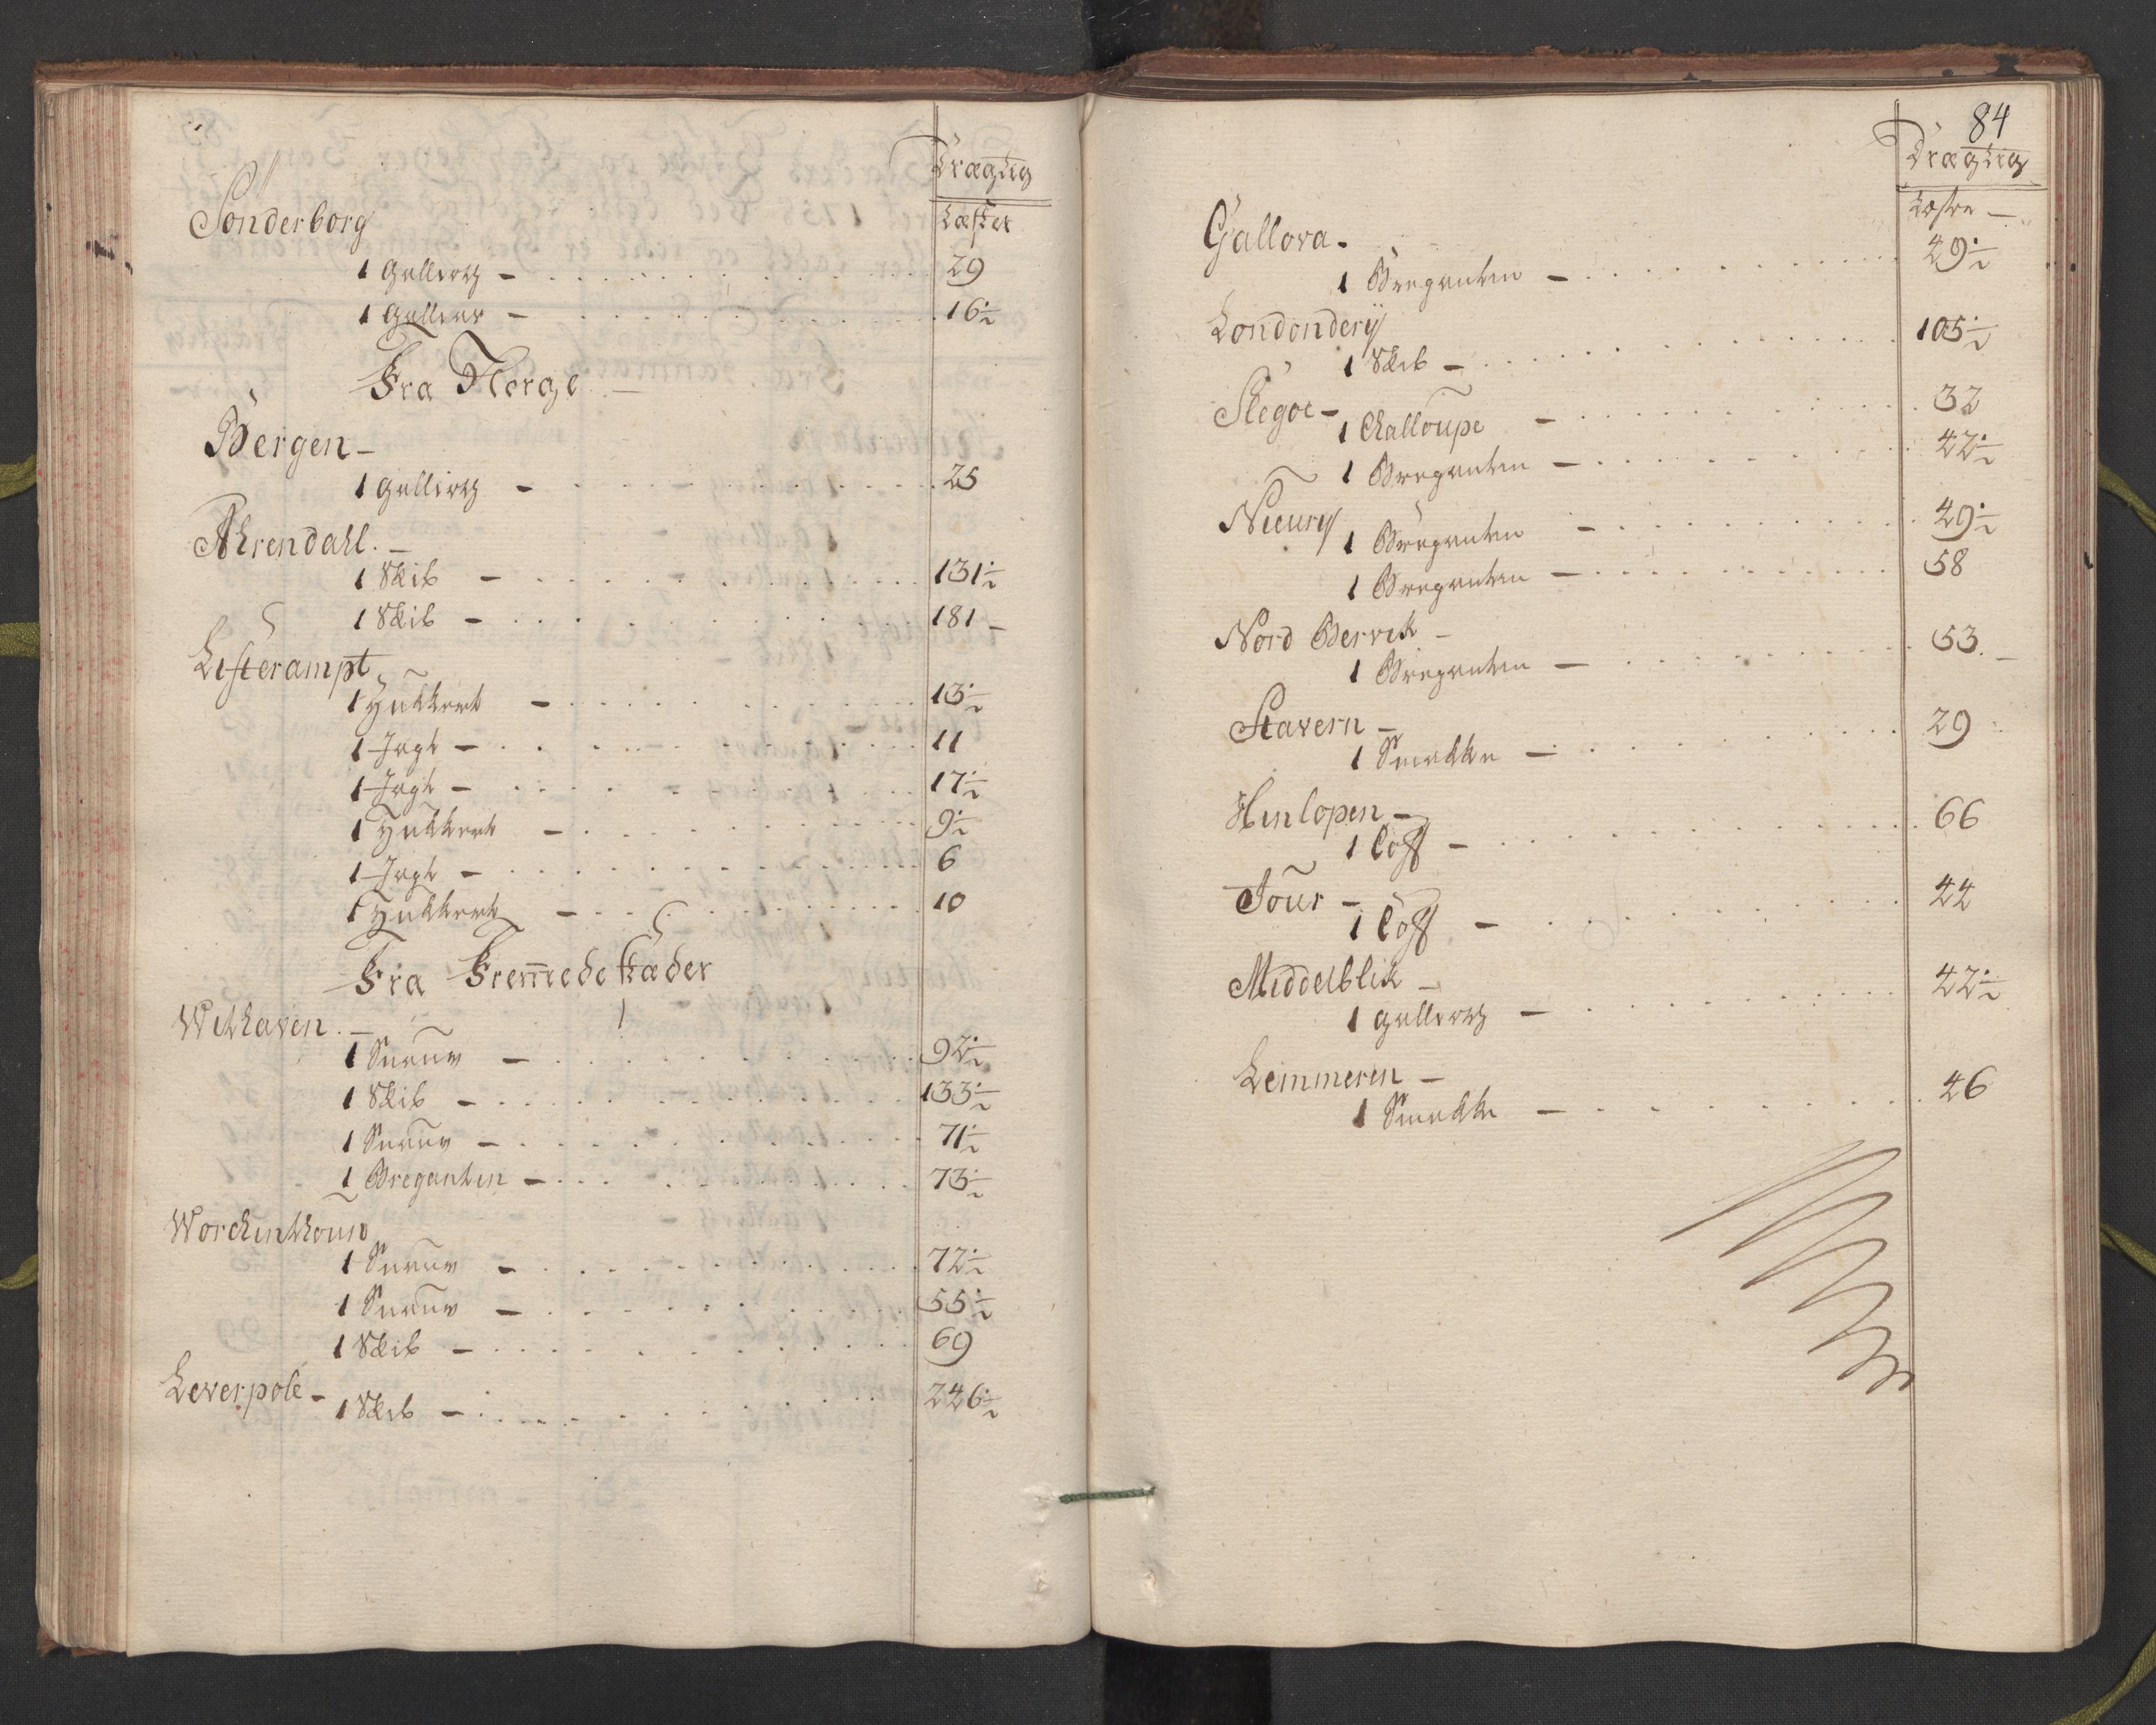 Drægtig
Læster
Sonderborg
1 Galliotz — 29
1 Gallias — 16½
Fra Norge —
Bergen —
1 Galliotz — 25
Ahrendahl. —
1 Skib — 131½
1 Skib — 181 —
Listerampt
1 Hukkert — 13½
1 Jagt — 11
1 Jagt — 17½
1 Hukkert — 9½
1 Jagt — 6
1 Hukkert — 10
Fra Fremmede Stæder
Withaven. —
1 Snauv — 92½
1 Skib — 133½
1 Snauv — 71½
1 Bregantin — 73½
Worchinthoun
1 Snauv — 72½
1 Snauv — 55½
1 Skib — 69
Leverpole —
1 Skib — 246½
84
Drægtig
Læster —
Gallova.
1 Bregantin — 49½
Londonderÿ
1 Skib — 105½
Slegoe —
1 Challoupe — 32
1 Bregantin — 42½
Nieurÿ
1 Bregantin — 49½
1 Bregantin — 58
Nord Bervik —
1 Bregantin — 53. —
Stavern —
1 Smakke — 29
Hinlopen —
1 Coff — 66
Jour —
1 Coff — 44
Middelblik —
1 Galliotz — 42½
Lemmeren —
1 Smakke — 46